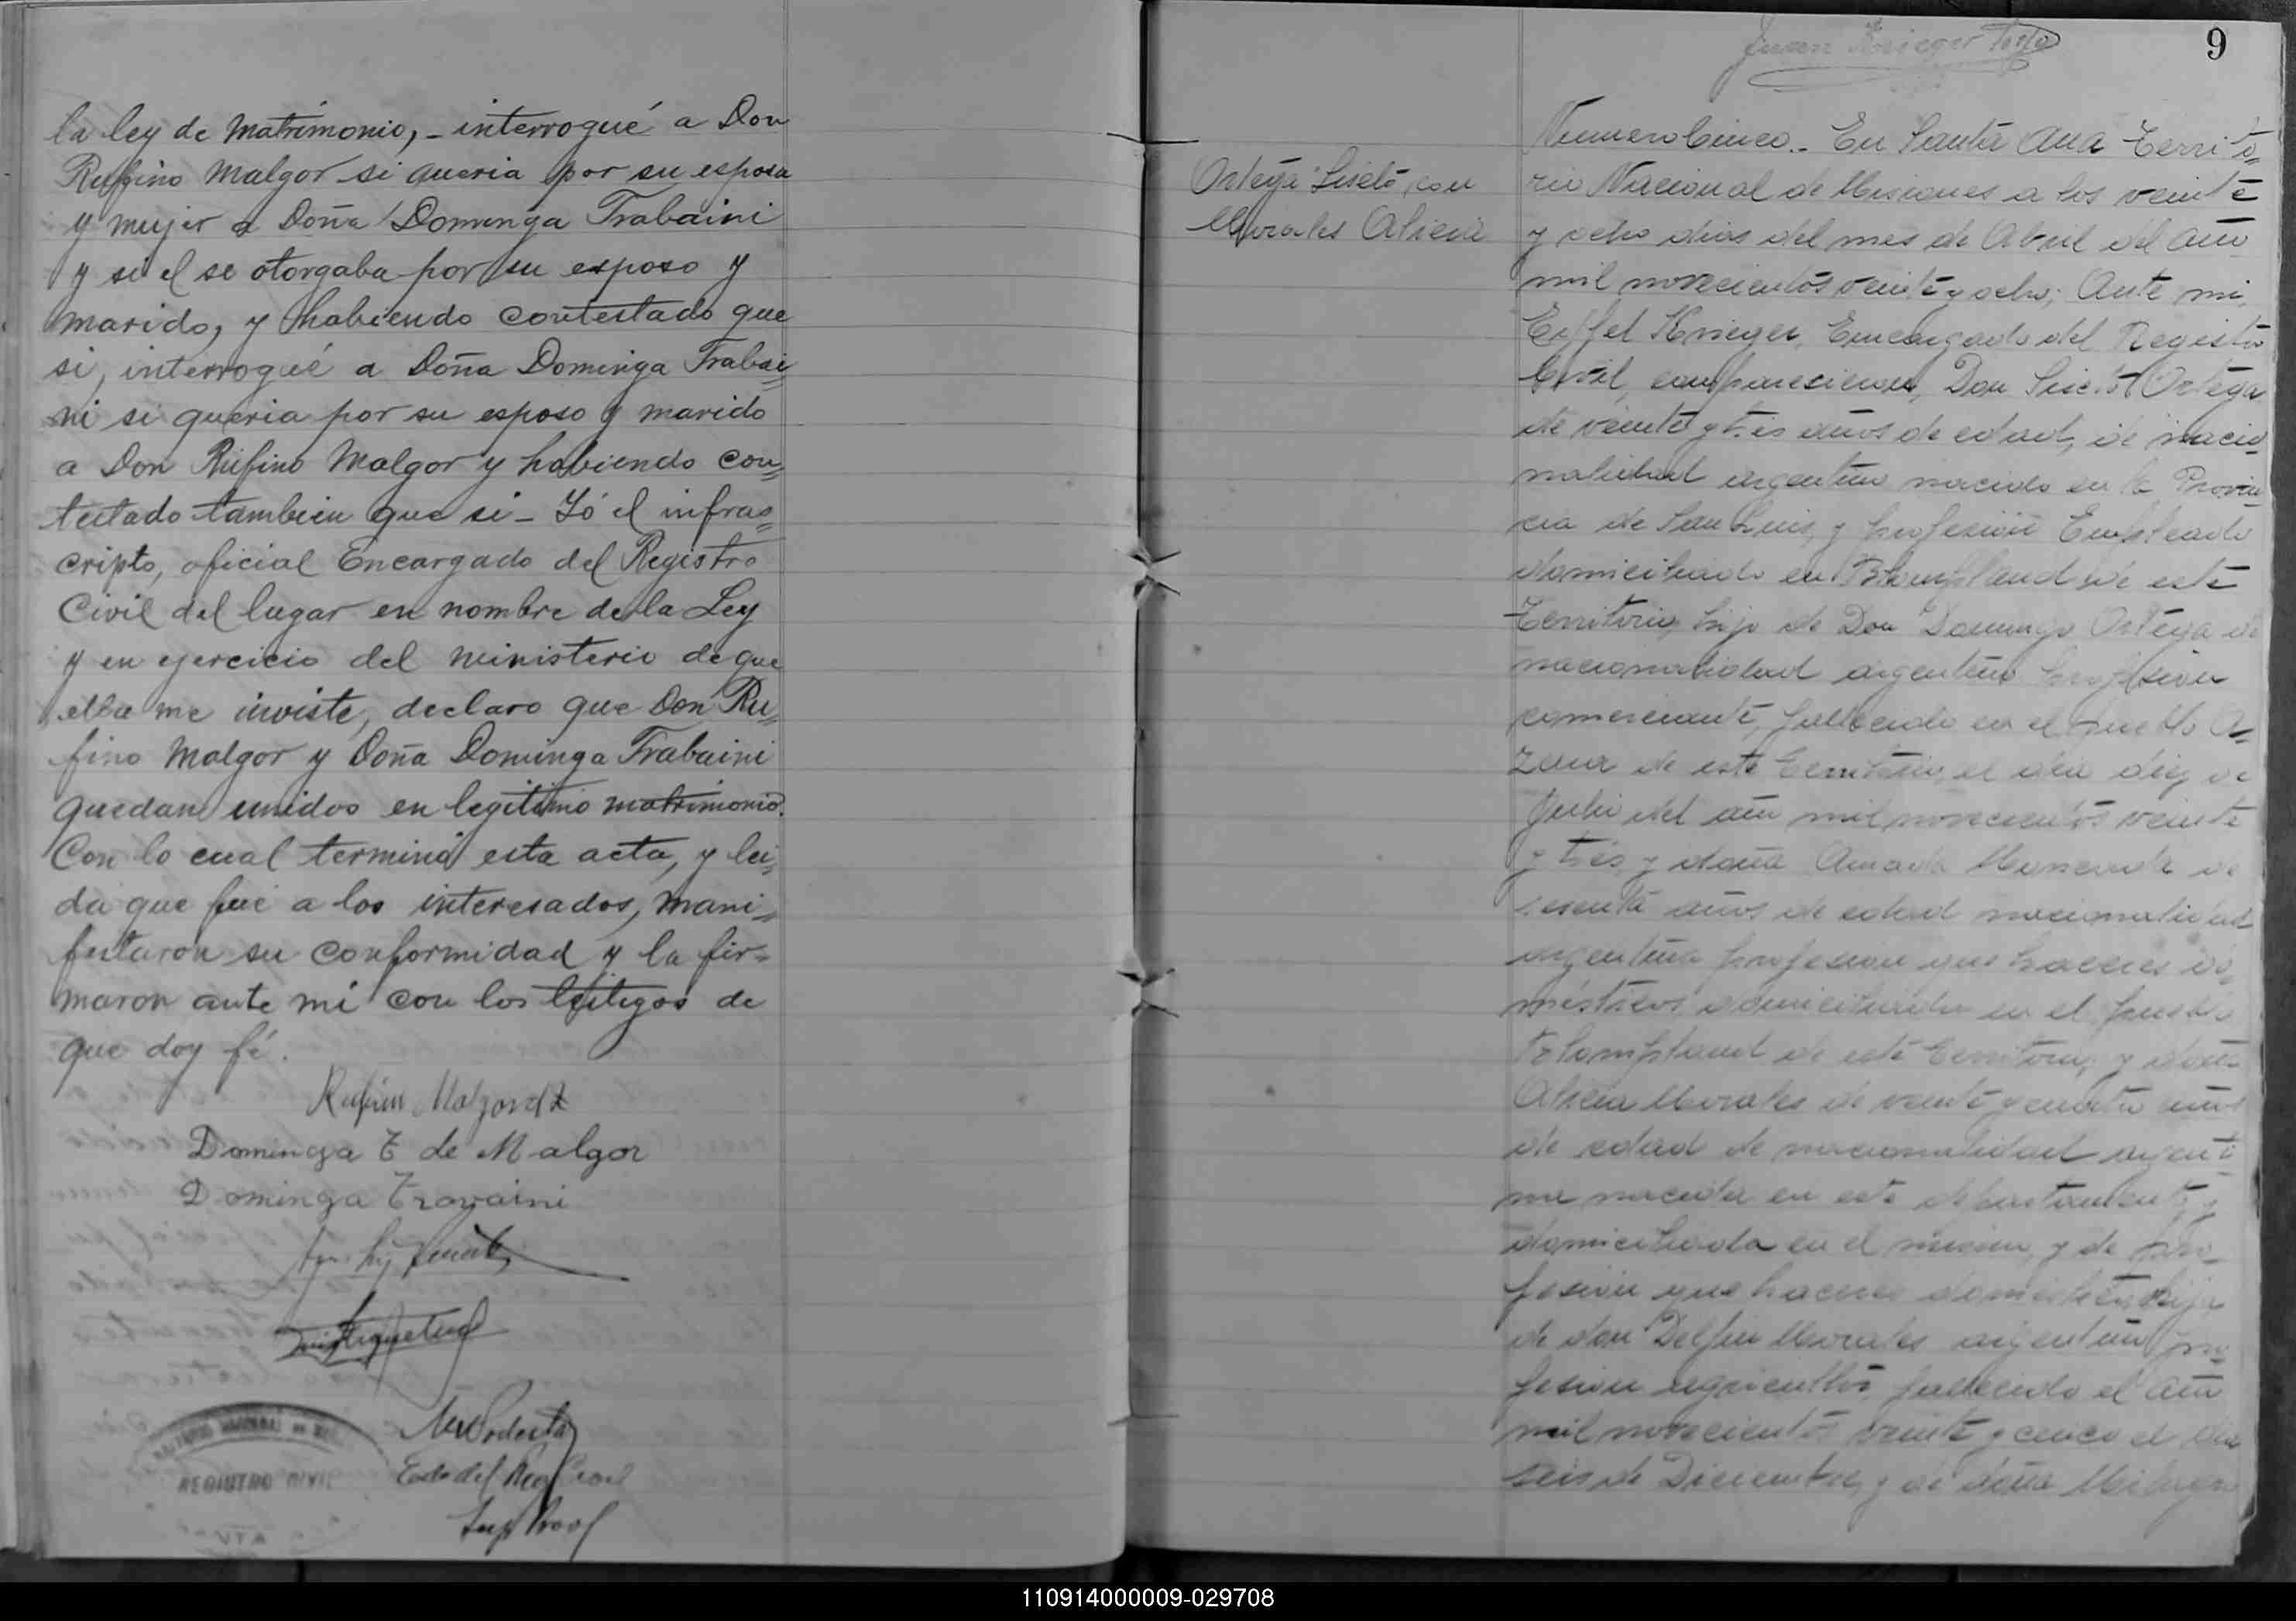 la ley de Matrimonio, - interrogué a Don
Rufino Malgor si queria por su esposa
y mujer a Doña Dominga Trabaini
y si el se otorgaba por su esposo y
marido, y habiendo contestado que
si, interrogué a Doña Dominga Trabai=
ni si queria por su esposo y marido
a Don Rufino Malgor y habiendo con=
testado tambien que si - Yó el infras=
cripto, oficial Encargado del Registro
Civil del lugar en nombre de la Ley
y en ejercicio del ministerio de que
ella me inviste, declaro que Don Ru=
fino Malgor y Doña Dominga Trabaini
quedan unidos en legitimo matrimonio.
Con lo cual terminó esta acta, y lei=
da que fué a los interesados, mani=
festaron su conformidad y la fir=
maron ante mi con los testigos de
que doy fé.
Rufino Malgor
Dominga T de Malgor
Dominga Travaini
Registro Civil
9
Juan Krieger
Ortega Liseto, con
Morales Alicia
Numero Cinco.- En Santa Ana Territo=
rio Nacional de Misiones a los veinte
y ocho dias del mes de Abril del año
mil novecientos veinte y ocho; Ante mi,
Eiffel Krieger, Encargado del Registro
Civil, comparecieron, Don Liseto Ortega
de veinte y tres años de edad, de nacio=
nalidad argentino nacido en la Provin=
cia de San Luis, y profesión Empleado
domiciliado en Bompland de este
Territorio, hijo de Don Domingo Ortega de
nacionalidad argentino profesion
comerciante, fallecido en el pueblo A=
zara de este Territorio, el dia diez de
Julio del año mil novecientos veinte
y tres, y doña Amada Moncada de
sesenta años de edad nacionalidad
argentina profesion quehaceres do=
mésticos, domiciliada en el pueblo
Bompland de este Territorio, y doña
Alicia Morales de veinte y cuatro años
de edad de nacionalidad argenti=
na nacida en este departamento y
domiciliada en el mismo, y de pro=
fesion quehaceres domésticos, hija
de don Delfin Morales argentino pro=
fesion agricultor, fallecido el año
mil novecientos veinte y cinco el dia
seis de Diciembre, y de doña
110914000009-029708